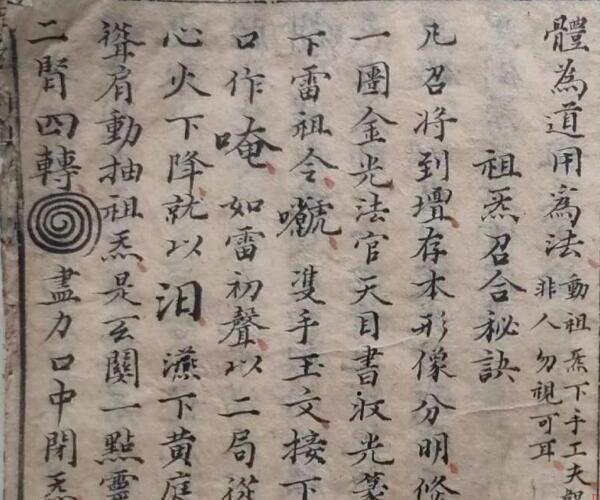 體為道用為法
動祖炁下手工夫
非人勿視可耳
祖炁召合秘訣
凡召将到壇存本形像分明
一圈金光法官天目書收光
下雷祖令 雙手玉文接下
口作唵如雷初聲以二局從
心火下降就以汨 下黄庭
聳肩動抽祖炁是玄關一點靈
二腎四轉 盡力口中閉炁